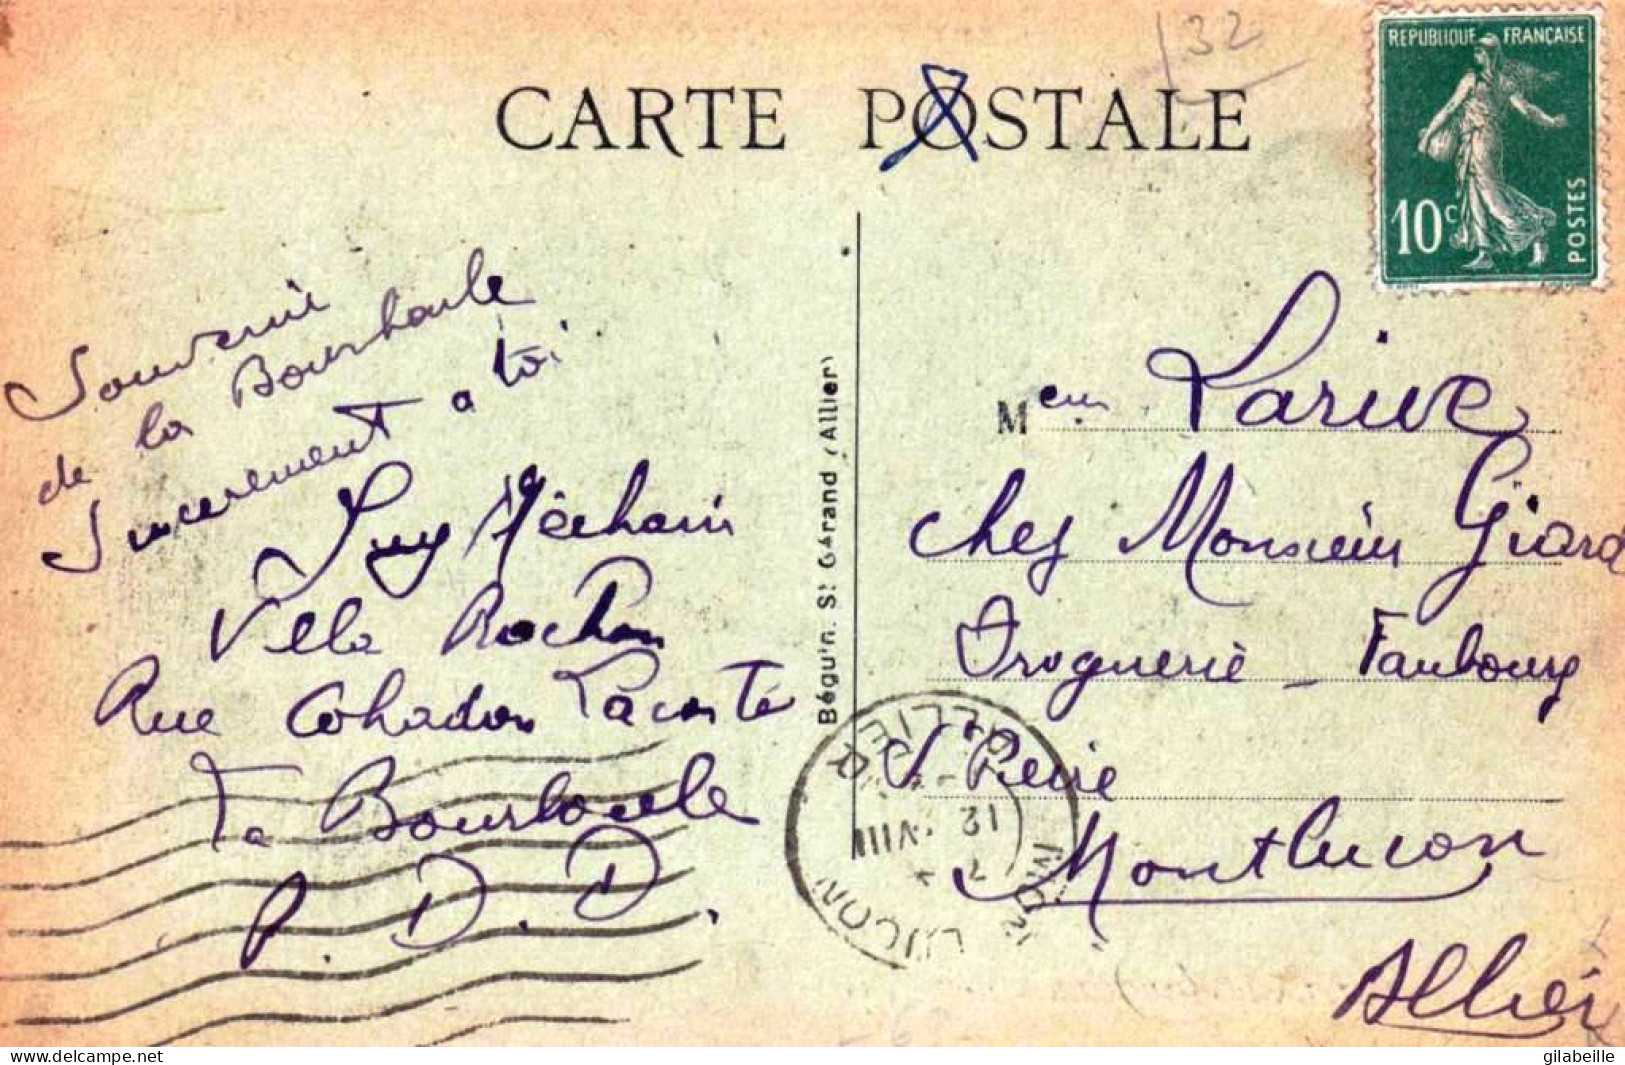 132
CARTE POSTALE
REPUBLIQUE FRANÇAISE
10c
POSTES
Souvenir
de la Bourboule
Sincerement a toi
Guy Méchain
Villa Rochon
Rue Cohadon Lacoste
La Bourboule
P. D. D.
Bégu'n. St Gérand (Allier)
Meur Larive
chez Monsieur Giard
Droguerie _ Faubourg
St Pierre
Montlucon
Allier
MONTLUCON
ALLIER
12 VIII
delcampe.net
gilabeille